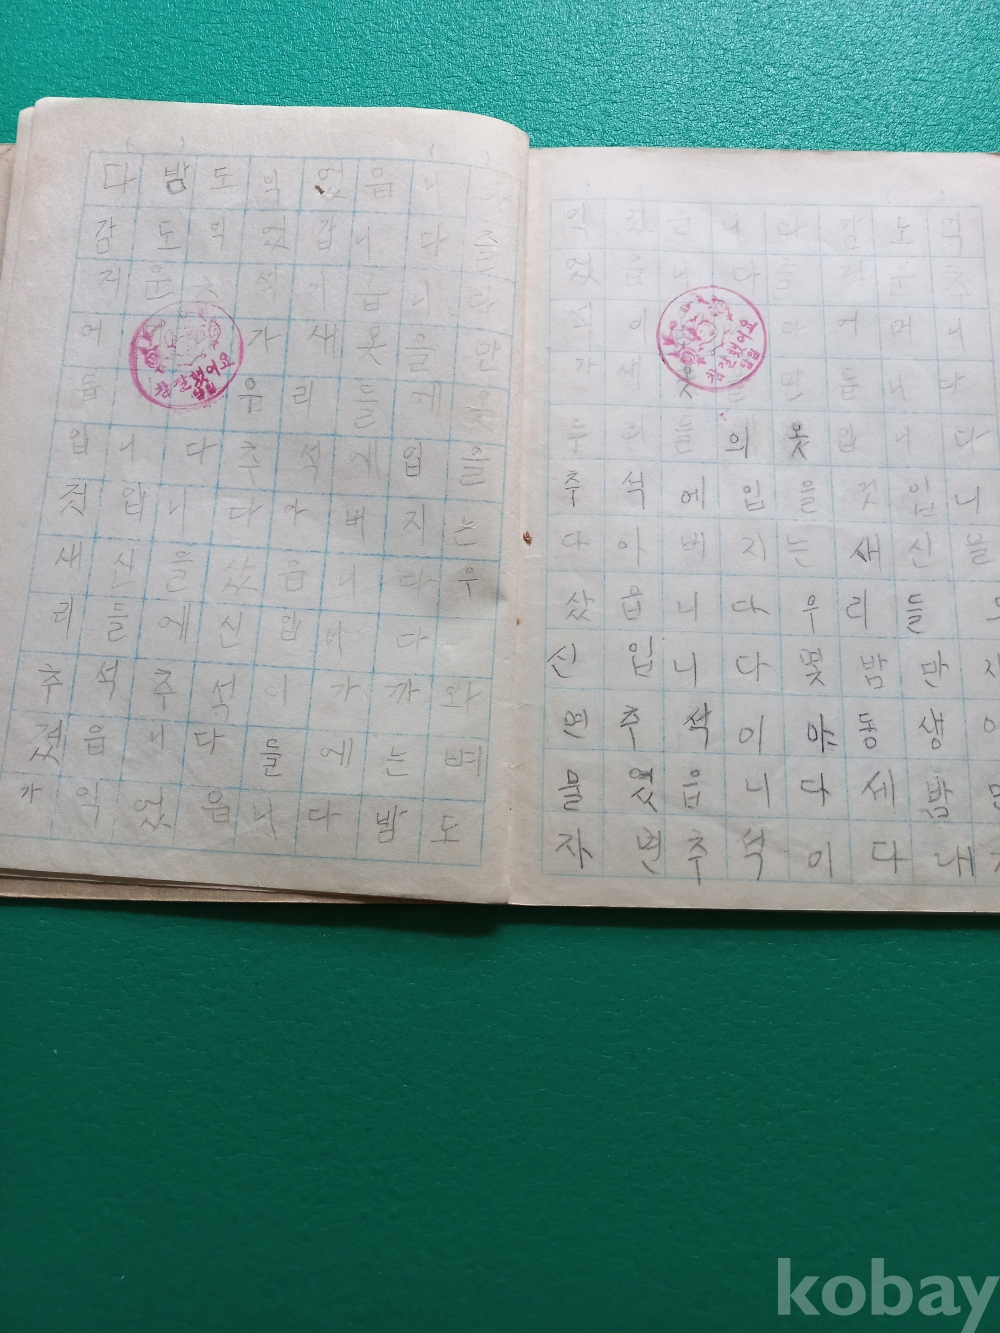 다밤도익었읍니
감도익었갑니다즐
거운추석기웁니다
어 가새옷을만
듭 우리들에옷
입니다추석에입을
것입니다아버지는
새신을샀읍니다우
리들에신입니다
추석추석이가까와
젔읍니다들에는벼
가익었읍니다밤도
익었습니다감도익
었읍니다즐거운추
석이 다어머니
가새옷 만듭니다
우리들의옷입니다
추석에입을것입니
다아버지는새신을
샀읍니다우리들의
신입니다몇밤만자
면추석이야동생이
물었읍니다세밤만
자면추석이다내가
참잘했어요
참잘했어요
kobay